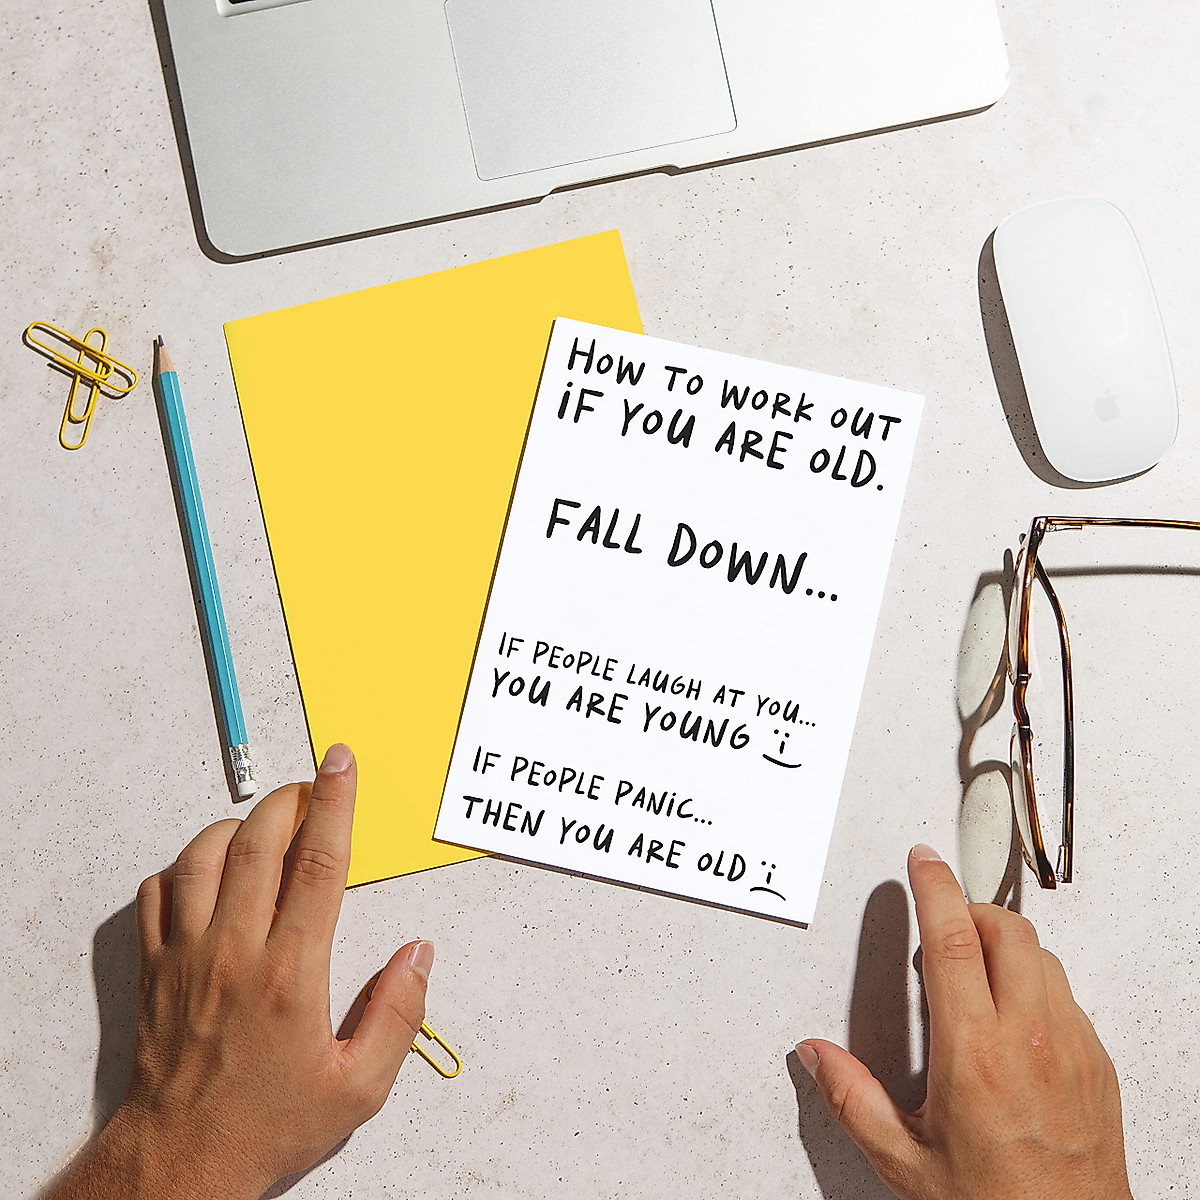 HOW TO WORK OUT
IF YOU ARE OLD.
FALL DOWN...
IF PEOPLE LAUGH AT YOU...
YOU ARE YOUNG
IF PEOPLE PANIC...
THEN YOU ARE OLD